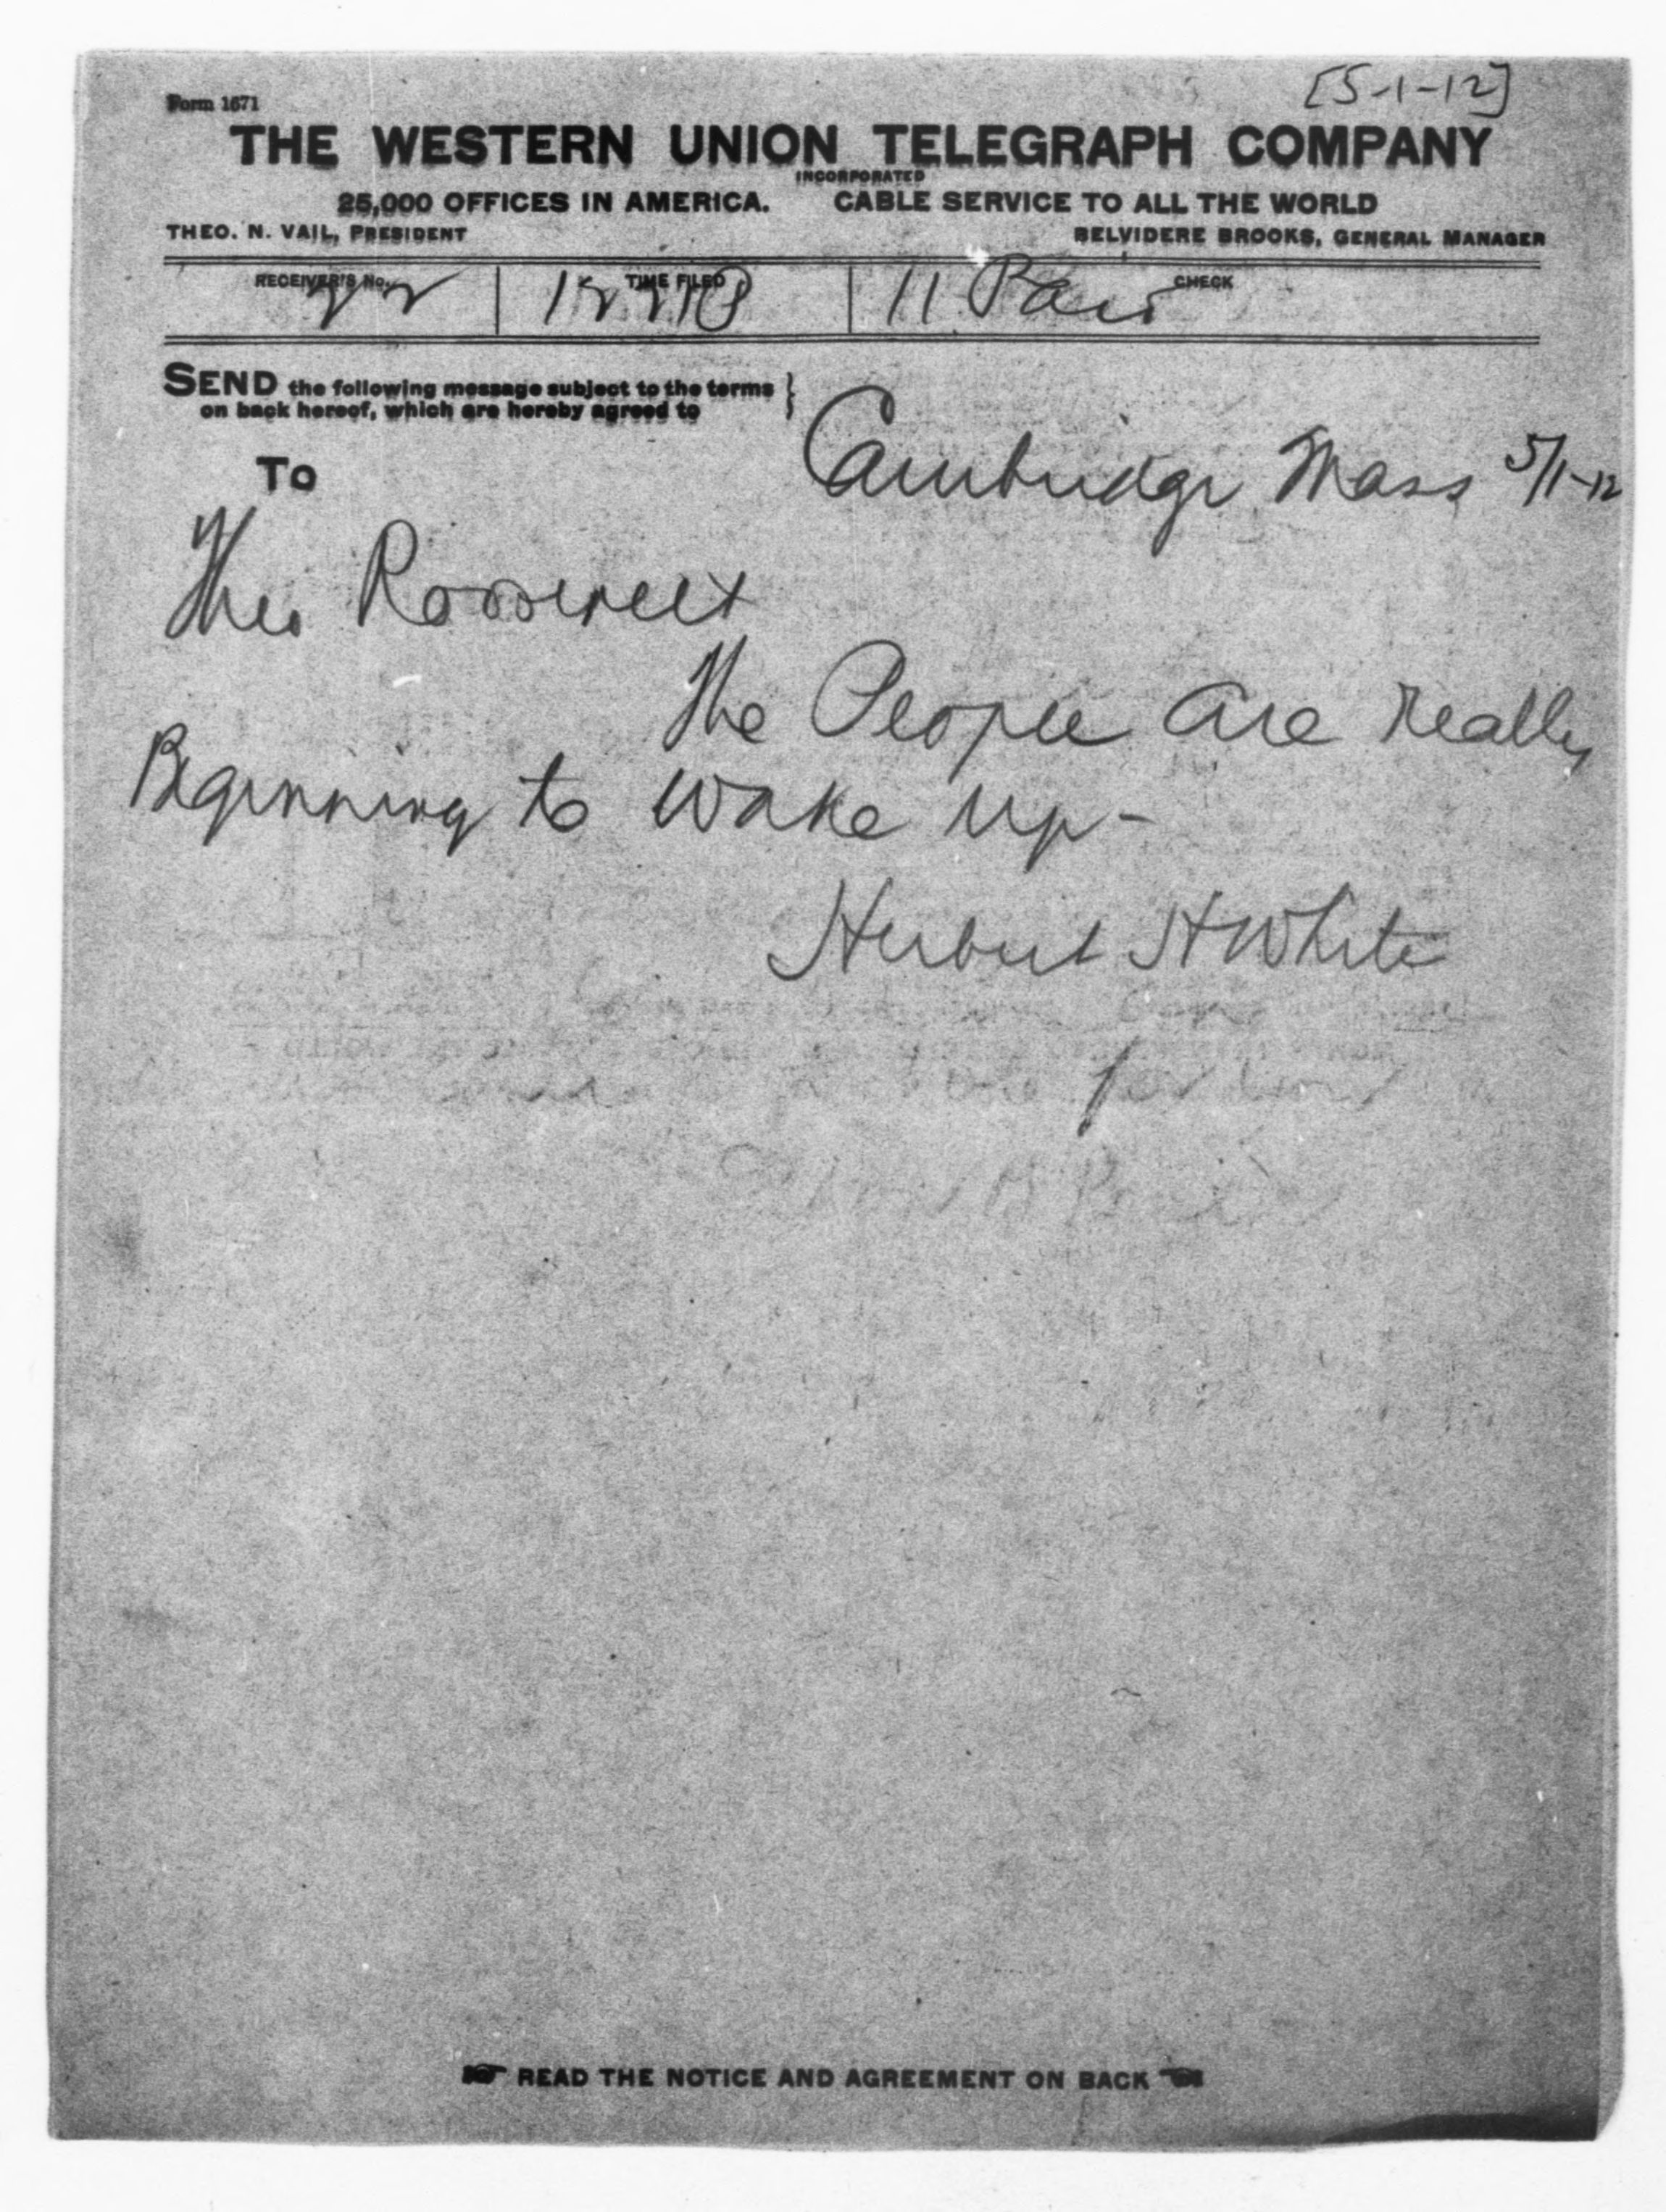 [5-1-12]
Form 1671
THE WESTERN UNION TELEGRAPH COMPANY
INCORPORATED
25,000 OFFICES IN AMERICA. CABLE SERVICE TO ALL THE WORLD
THEO. N. VAIL, PRESIDENT BELVIDERE BROOKS, GENERAL MANAGER
RECEIVER'S No. TIME FILED CHECK
11 Paid
SEND the following message subject to the terms
on back hereof, which are hereby agreed to
Cambridge Mass 5/1-12
To
Theo Roosevelt
The People are really
Beginning to wake up-
Herbert H White
READ THE NOTICE AND AGREEMENT ON BACK